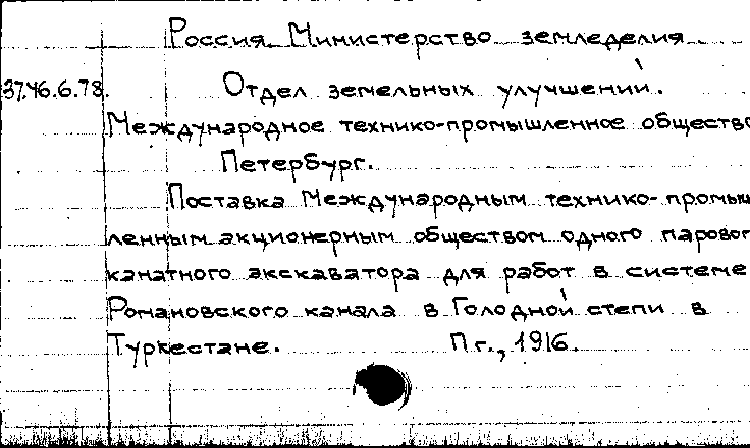 Россия. Министерство земледелия.
37.46.6.78. Отдел земельных улучшений.
Международное технико-промышленное общество
Петербург.
Поставка Международным технико-промыш
ленным акционерным обществом одного паровог
канатного экскаватора для работ в системе
Романовского канала в Голодной степи в
Туркестане. Пг., 1916.